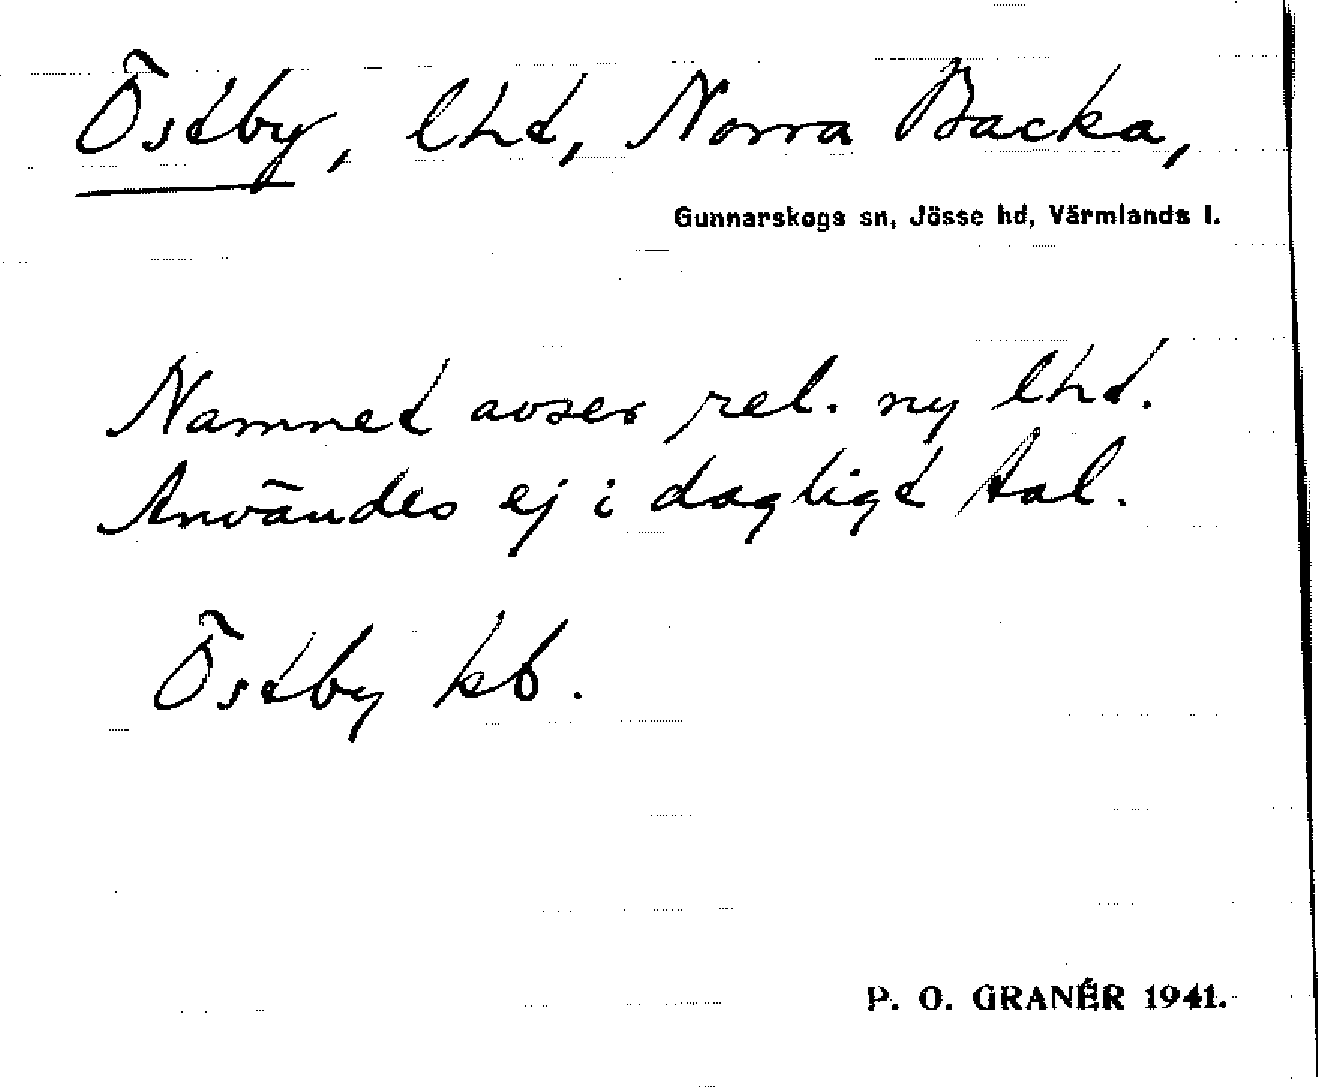 Östby, lht, Norra Backa,
Gunnarskogs sn, Jösse hd, Värmlands l.
Namnet avser rel. ny lht.
Användes ej i dagligt tal.
Östby kb.
P. O. GRANÉR 1941.